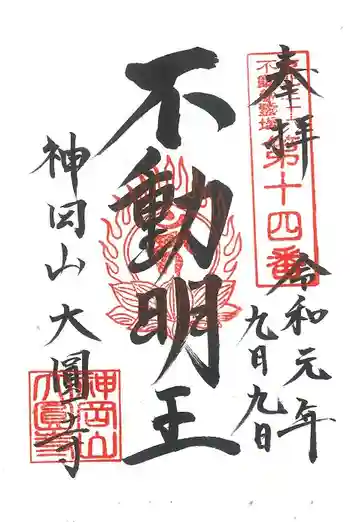 奉拝
第十四番
令和元年
九月九日
不動明王
神岡山大圓寺
神岡山
大圓寺